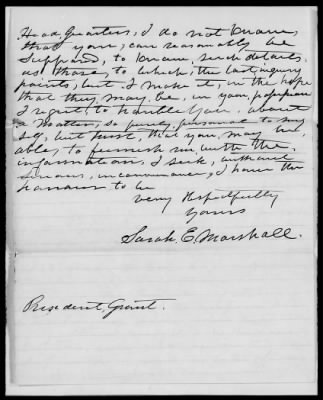 Head Quarters, I do not know,
that you, can reasonably be
supposed, to know, such details,
as those, to which, the last inquiry
points, but I make it, in the hope
that they may be, in your possession
I regret, to trouble you about
a matter, so purely personal to my
self, but trust that you may be
able, to furnish me with the,
information, I seek, without
serious, inconvenience, I have the
honour to be
very Respectfully
Yours
Sarah E. Marshall.
President, Grant.